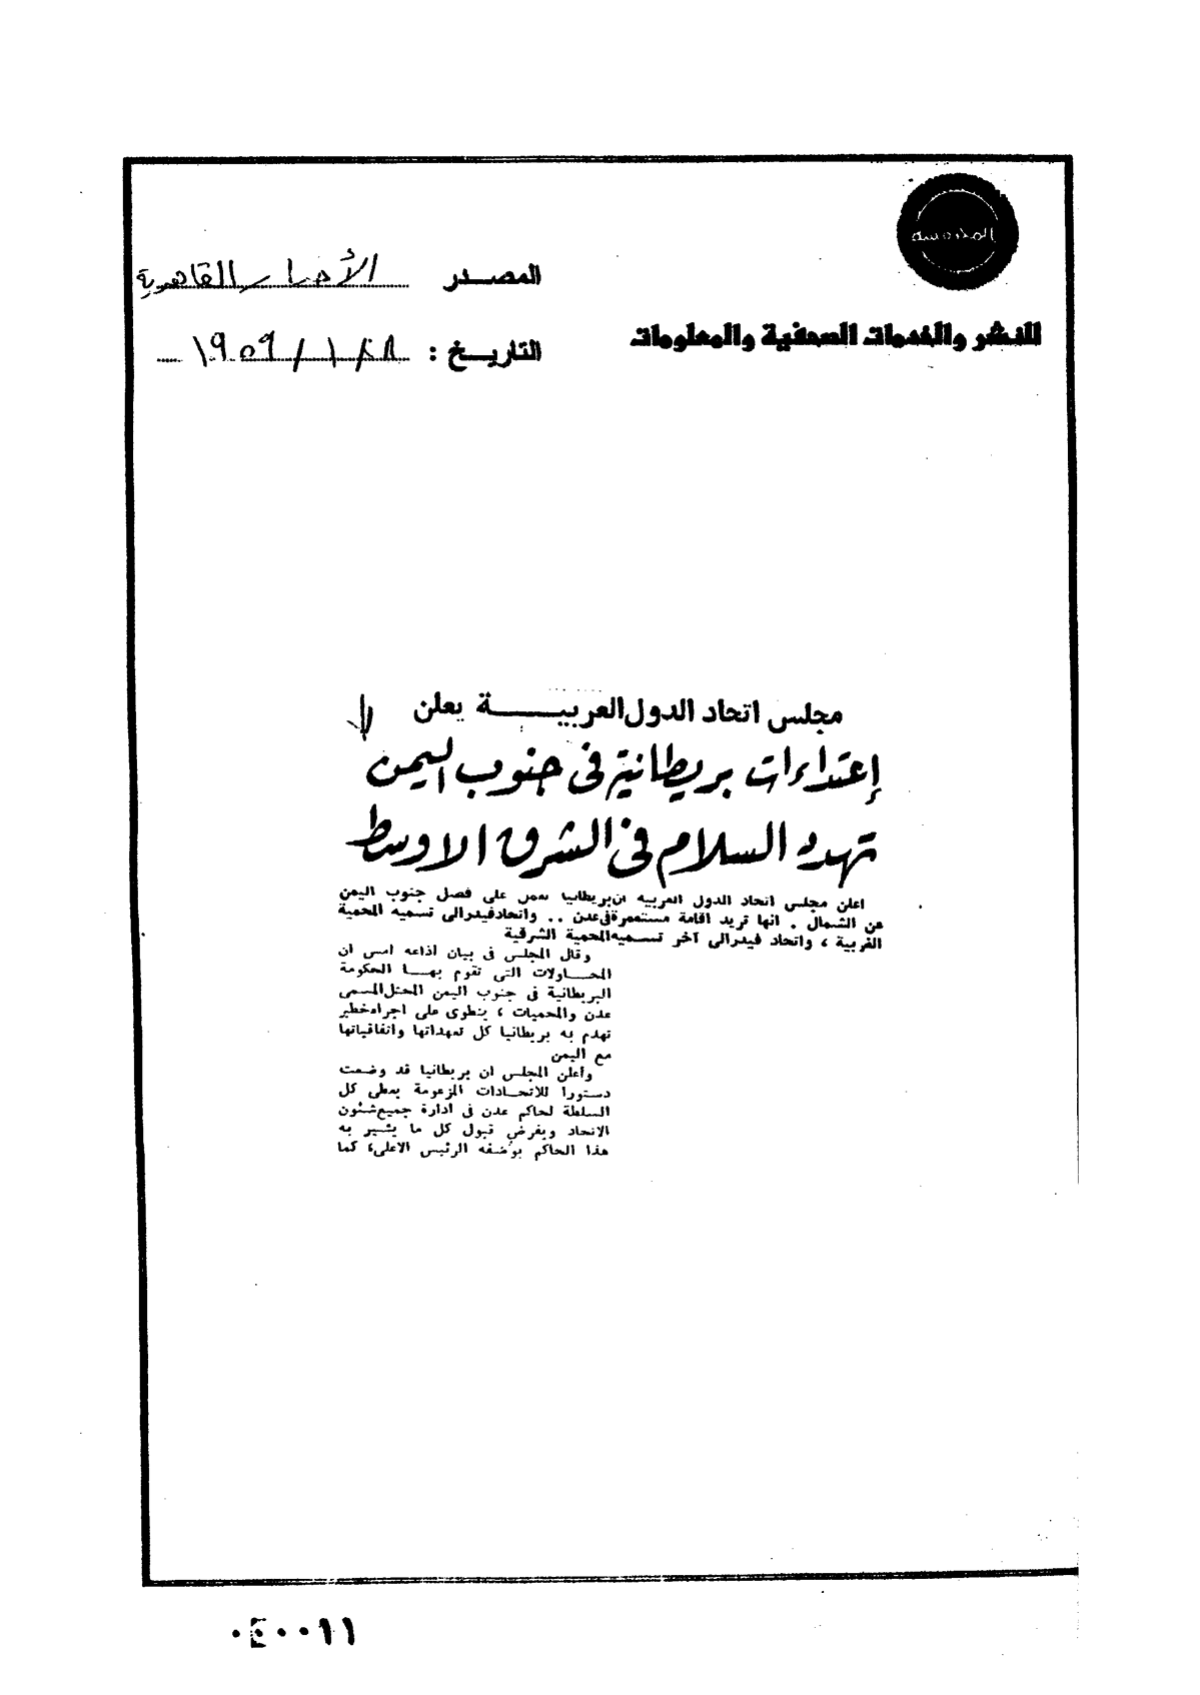 المصدر الأخبار القاهرية
للنشر والخدمات الصحفية والمعلومات
التاريخ : ٢٨ / ١ / ١٩٥٩
مجلس اتحاد الدول العربية يعلن
إعتداءات بريطانية فى جنوب اليمن
تهدد السلام فى الشرق الاوسط
اعلن مجلس اتحاد الدول العربية ان بريطانيا تعمل على فصل جنوب اليمن
عن الشمال . انها تريد اقامة مستعمرة فى عدن .. واتحاد فيدرالى تسميه المحمية
الغربية ، واتحاد فيدرالى آخر تسميه المحمية الشرقية
وقال المجلس فى بيان اذاعه امس ان
المحاولات التى تقوم بها الحكومة
البريطانية فى جنوب اليمن المحتل المسمى
عدن والمحميات ، ينطوى على اجراء خطير
تهدم به بريطانيا كل تعهداتها واتفاقياتها
مع اليمن
وأعلن المجلس ان بريطانيا قد وضعت
دستورا للاتحادات المزعومة يعطى كل
السلطة لحاكم عدن فى ادارة جميع شئون
الاتحاد ويفرض قبول كل ما يشير به
هذا الحاكم بوصفه الرئيس الاعلى، كما
٠٤٠٠١١